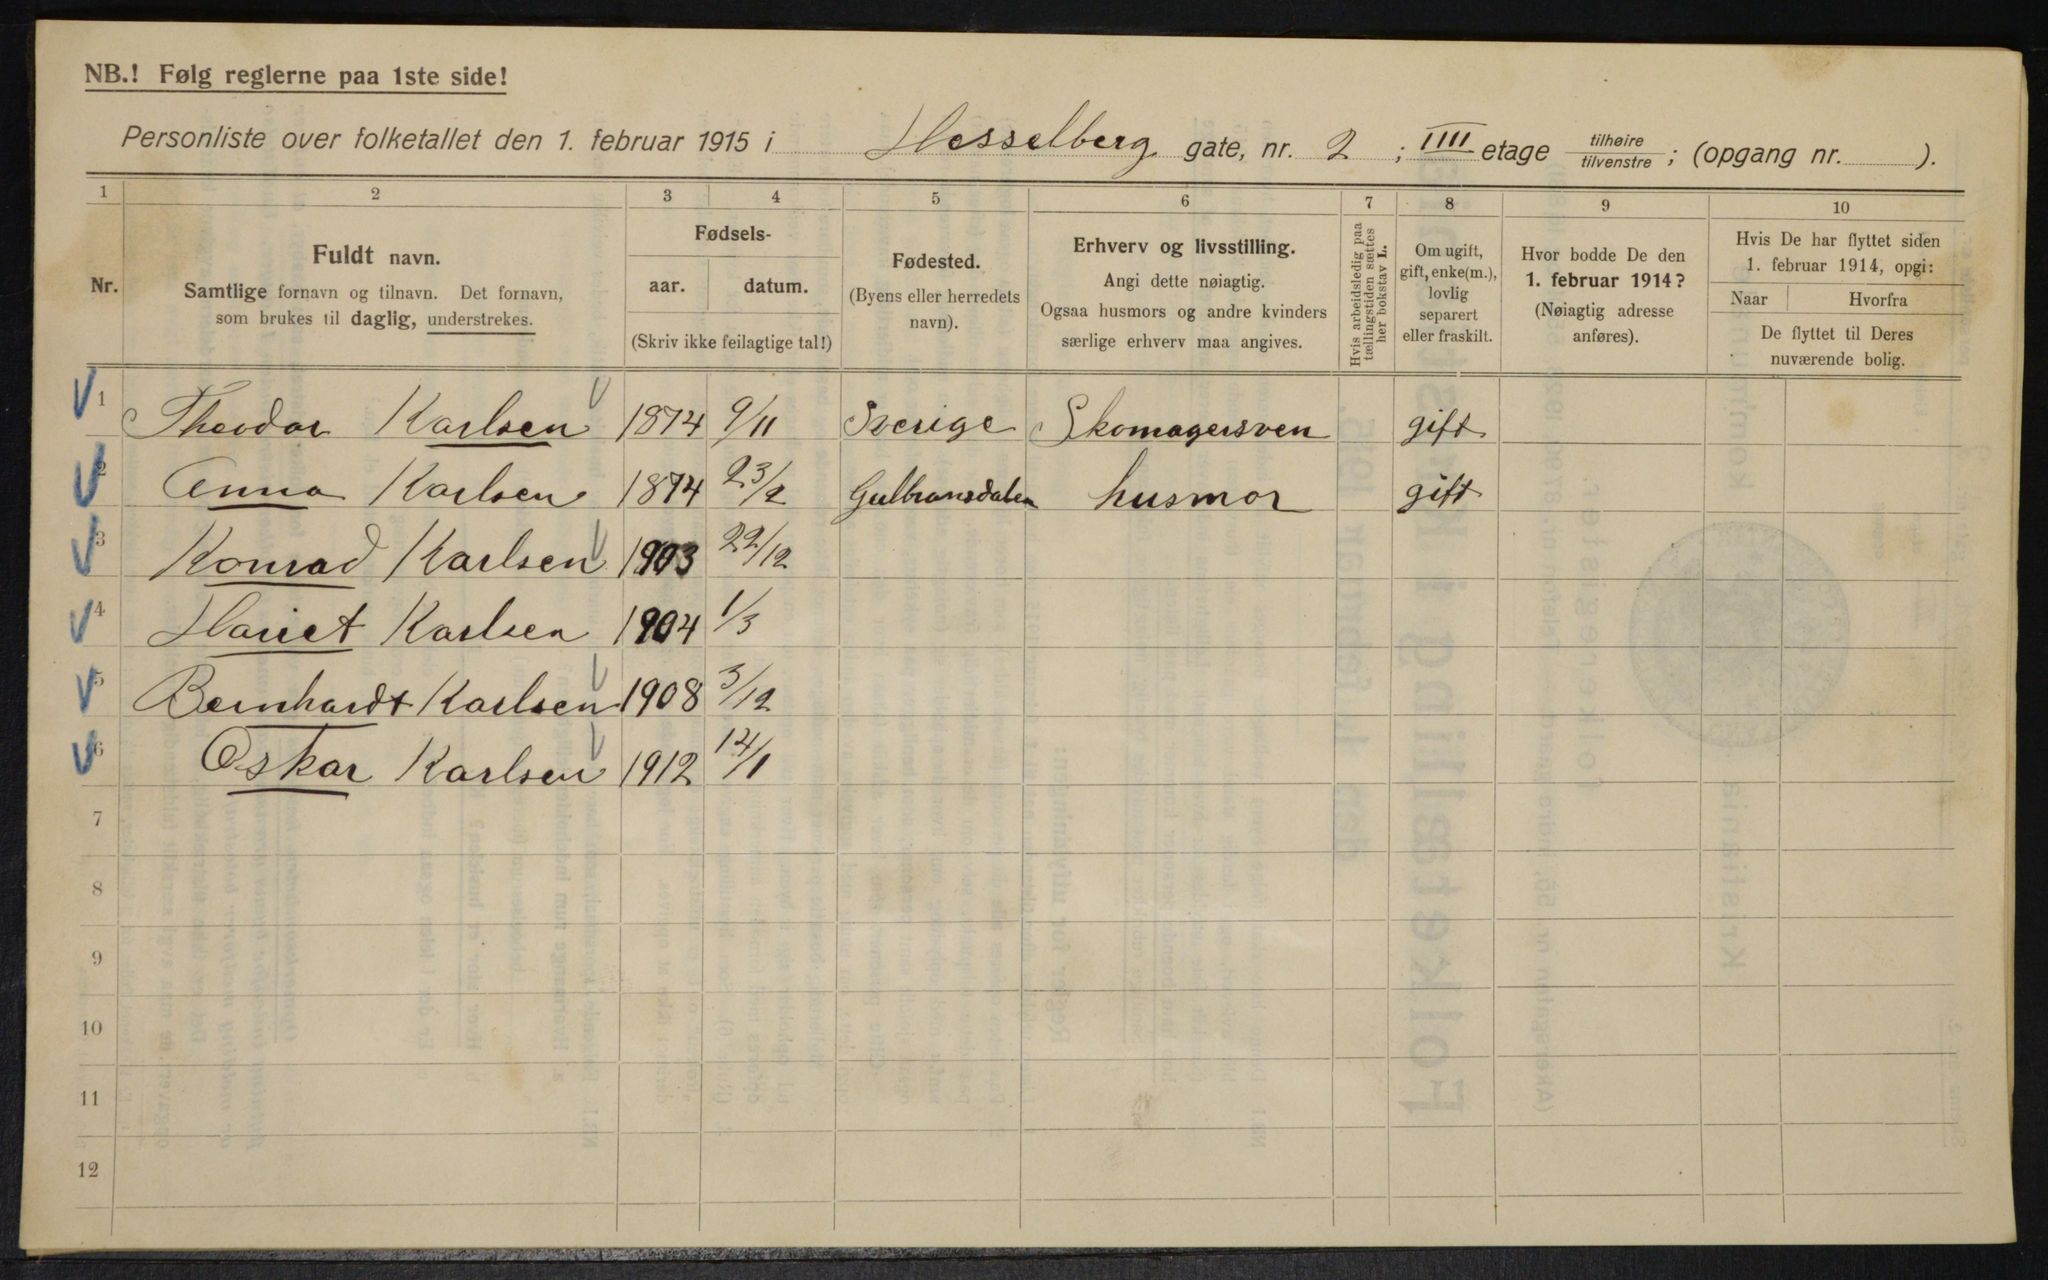 NB.! Følg reglerne paa 1ste side!
Personliste over folketallet den 1. februar 1915 i Hesselberg gate, nr. 2 ; IIII etage tilhøire tilvenstre ; (opgang nr. ).
1 2 3 4 5 6 7 8 9 10
Nr.
Fuldt navn.
Samtlige fornavn og tilnavn. Det fornavn,
som brukes til daglig, understrekes.
Fødsels-
aar. datum.
(Skriv ikke feilagtige tal!)
Fødested.
(Byens eller herredets
navn).
Erhverv og livsstilling.
Angi dette nøiagtig.
Ogsaa husmors og andre kvinders
særlige erhverv maa angives.
Hvis arbeidsledig paa
tællingstiden sættes
her bokstav L.
Om ugift,
gift, enke(m.),
lovlig
separert
eller fraskilt.
Hvor bodde De den
1. februar 1914?
(Nøiagtig adresse
anføres).
Hvis De har flyttet siden
1. februar 1914, opgi:
Naar Hvorfra
De flyttet til Deres
nuværende bolig.
1 Theodor Karlsen 1874 9/11 Sverige Skomagersven gift
2 Anna Karlsen 1874 23/2 Gulbransdalen husmor gift
3 Konrad Karlsen 1903 22/12
4 Hariet Karlsen 1904 1/3
5 Bernhardt Karlsen 1908 3/12
6 Oskar Karlsen 1912 14/1
7
8
9
10
11
12